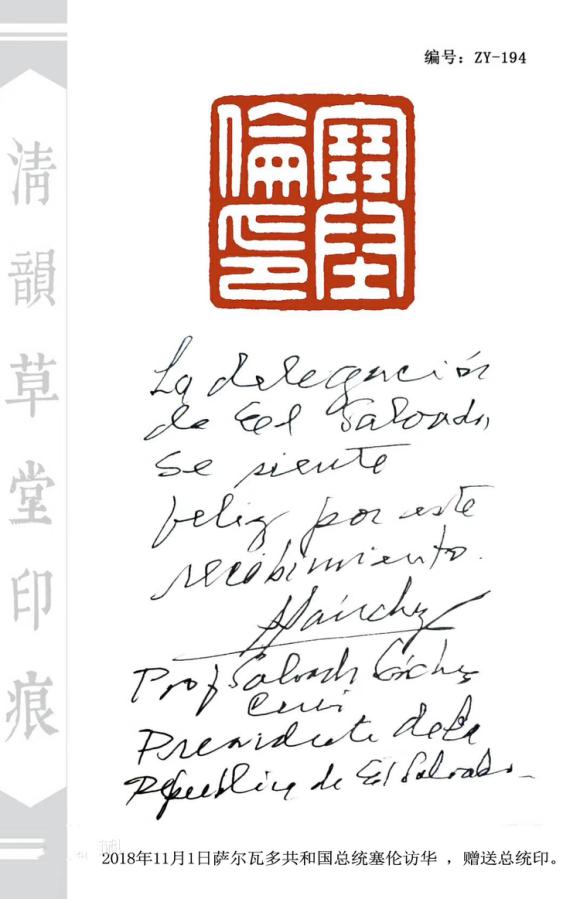 编号：ZY-194
清韻草堂印痕
塞倫之印
La delegación
de El Salvador
se siente
feliz por este
recibimiento.
SSánchez
Prof Salvador Sánchez
Cerén
Presidente de la
República de El Salvador
2018年11月1日萨尔瓦多共和国总统塞伦访华 ，赠送总统印。